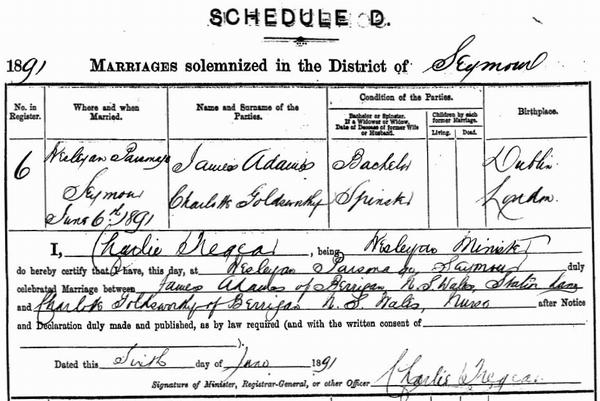 SCHEDULE D.
1891 MARRIAGES solemnized in the District of Seymour
No. in Register. Where and when Married. Name and Surname of the Parties. Condition of the Parties. Birthplace.
Bachelor or Spinster. If a Widower or Widow, Date of Decease of former Wife or Husband. Children by each former Marriage. Living. Dead.
6 Wesleyan Parsonage James Adams Bachelor Dublin
Seymour Charlotte Goldsworthy Spinster London.
June 6th 1891
I, Charlie Tregear, being Wesleyan Minister
do hereby certify that I have, this day, at Wesleyan Parsonage Seymour duly
celebrated Marriage between James Adams of Berrigan N. S Wales, Station
and Charlotte Goldsworthy of Berrigan N. S. Wales, Nurse after Notice
and Declaration duly made and published, as by law required (and with the written consent of
).
Dated this Sixth day of June 1891
Signature of Minister, Registrar-General, or other Officer Charlie Tregear